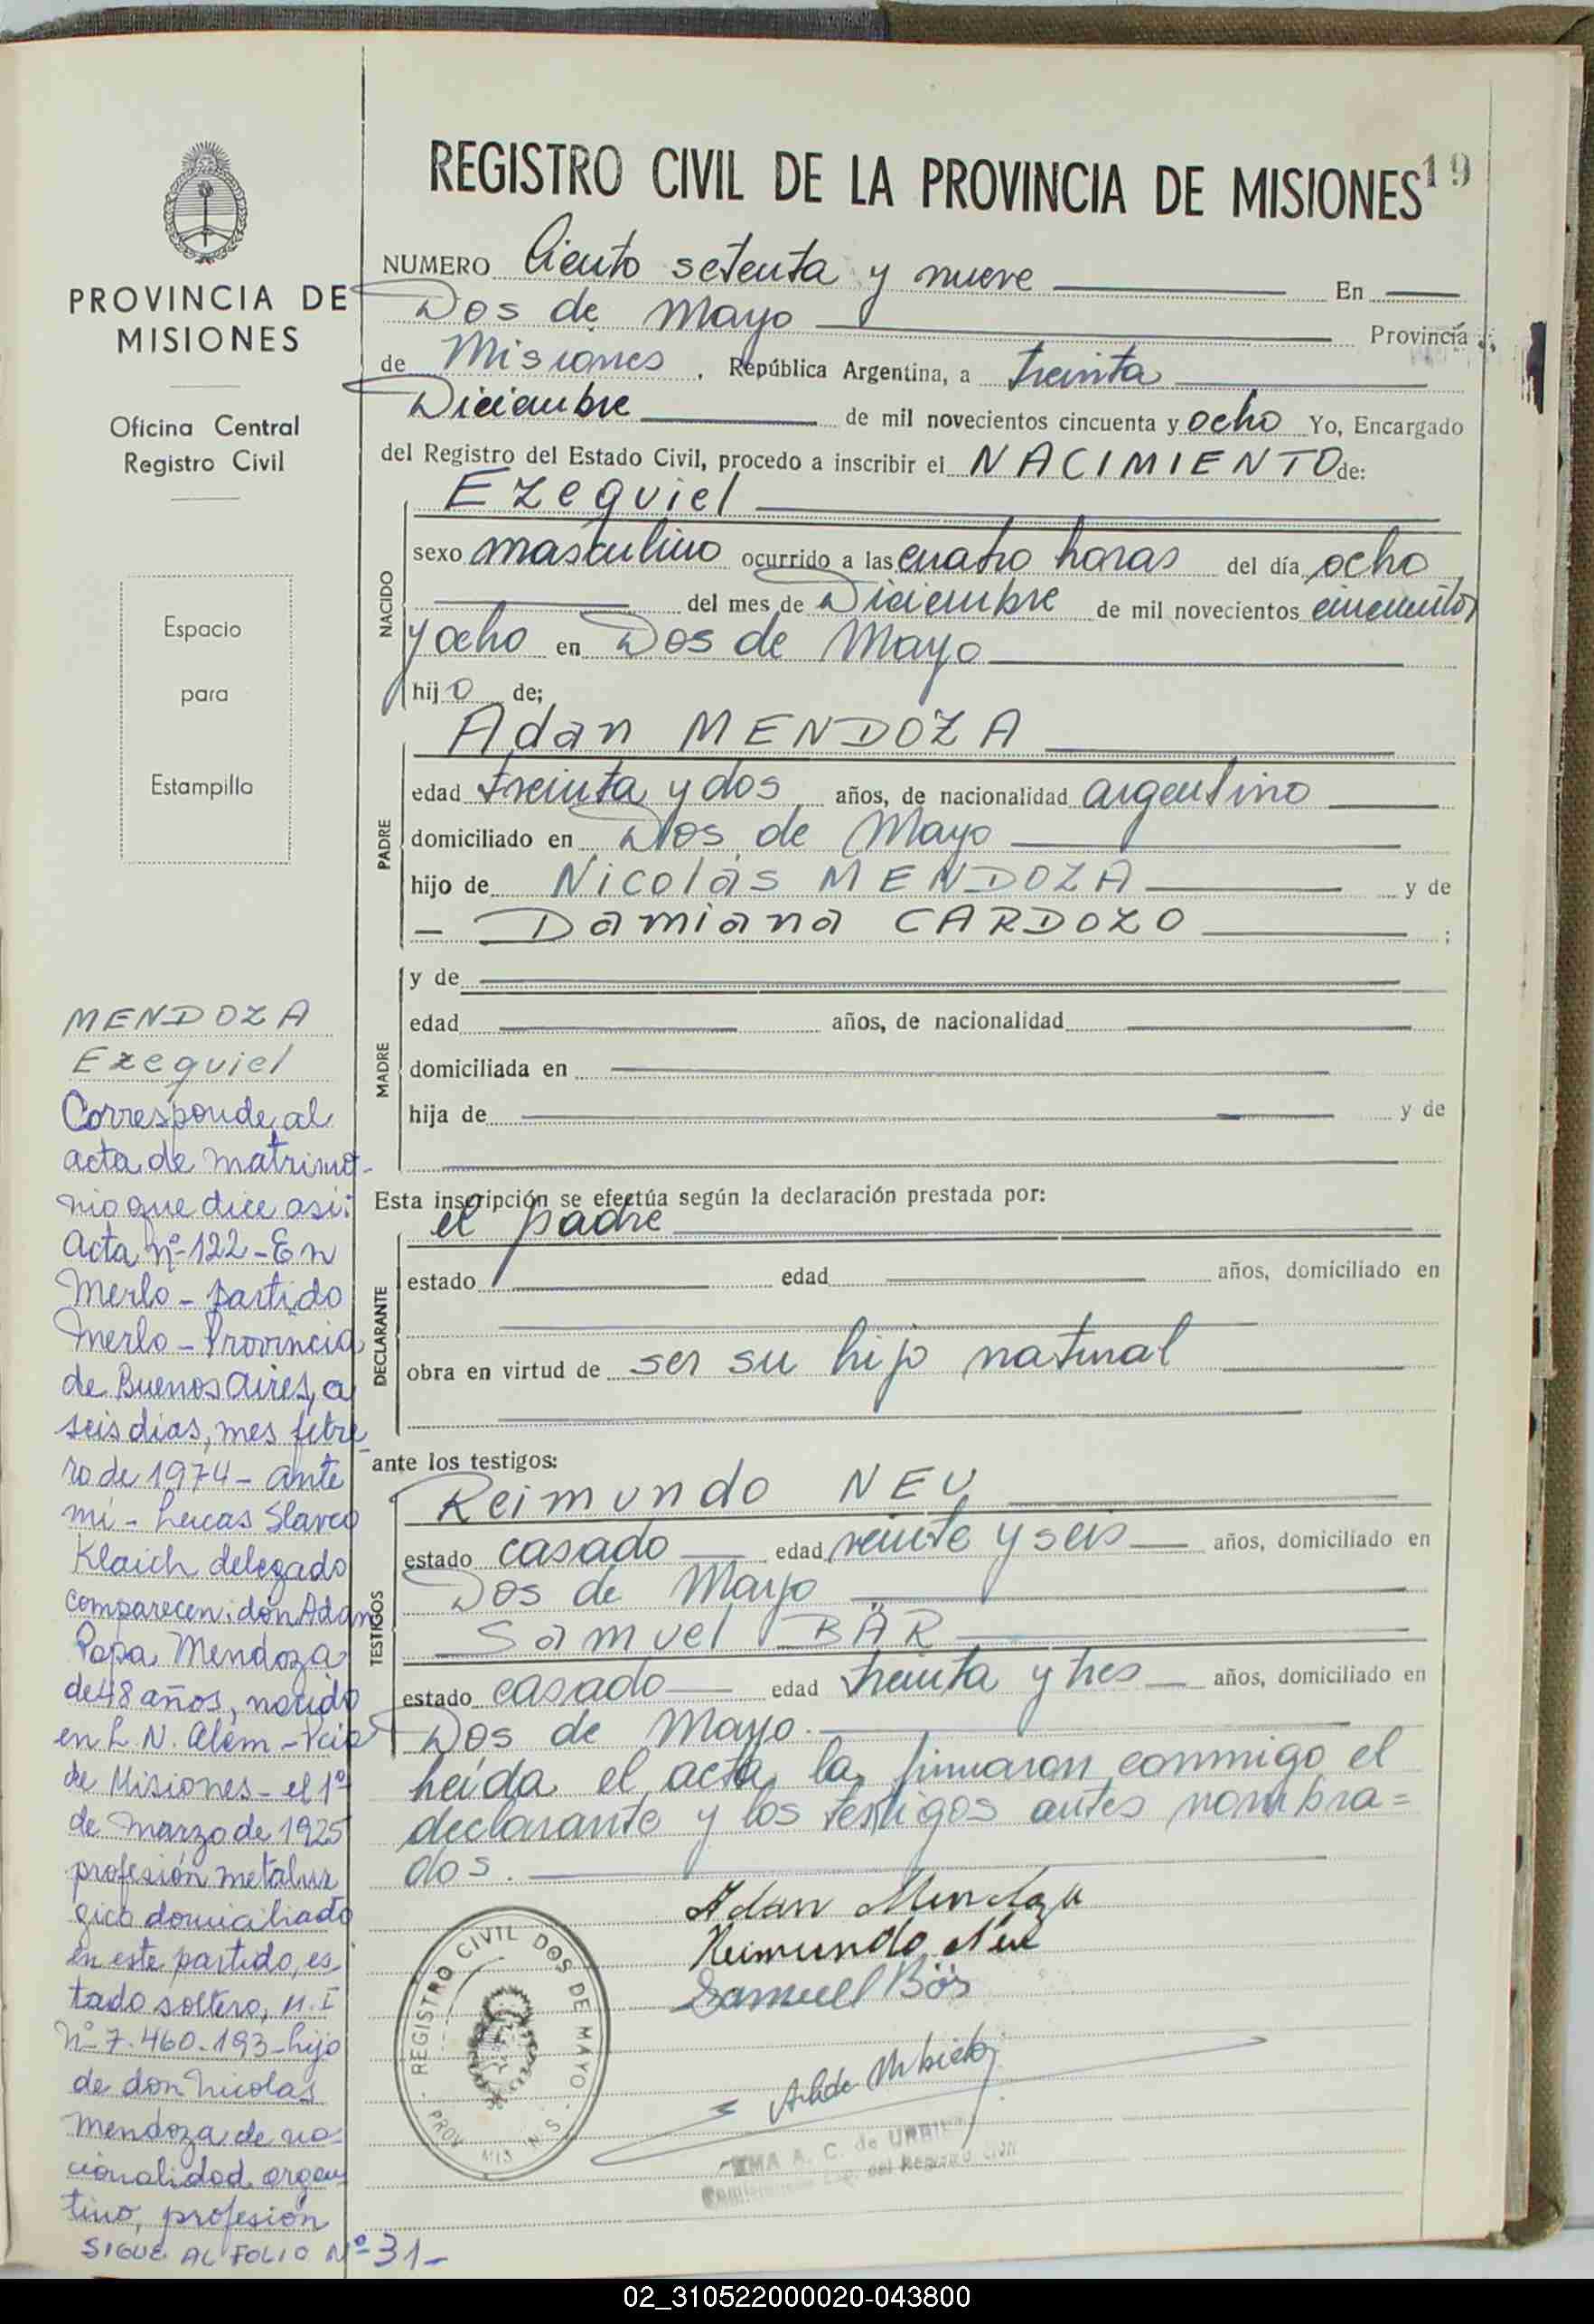 REGISTRO CIVIL DE LA PROVINCIA DE MISIONES
19
NUMERO Ciento setenta y nueve En
Dos de Mayo Provincia
de Misiones, República Argentina, a treinta
Diciembre de mil novecientos cincuenta y ocho Yo, Encargado
del Registro del Estado Civil, procedo a inscribir el NACIMIENTO de:
NACIDO
Ezequiel
sexo masculino ocurrido a las cuatro horas del día ocho
del mes de Diciembre de mil novecientos cincuenta
y ocho en Dos de Mayo
hijo de;
PADRE
Adan MENDOZA
edad treinta y dos años, de nacionalidad argentino
domiciliado en Dos de Mayo
hijo de Nicolás MENDOZA y de
Damiana CARDOZO ;
MADRE
y de
edad años, de nacionalidad
domiciliada en
hija de y de
Esta inscripción se efectúa según la declaración prestada por:
DECLARANTE
el padre
estado edad años, domiciliado en
obra en virtud de ser su hijo natural
ante los testigos:
TESTIGOS
Reimundo NEU
estado casado edad veinte y seis años, domiciliado en
Dos de Mayo
Samuel BÄR
estado casado edad treinta y tres años, domiciliado en
Dos de Mayo.
Leída el acta, la firmaron conmigo el
declarante y los testigos antes nombra=
dos.
Adan Mendoza
Reimundo Neu
Samuel Bär
REGISTRO CIVIL DOS DE MAYO
PROV. MIS
A. C. de
PROVINCIA DE
MISIONES
Oficina Central
Registro Civil
Espacio
para
Estampilla
MENDOZA
Ezequiel
Corresponde al
acta de matrimo-
nio que dice asi:
Acta Nº 122 - En
Merlo - partido
Merlo - Provincia
de Buenos Aires, a
seis dias, mes febre-
ro de 1974 - ante
mi - Lucas Slavco
Klaich delegado
comparecen: don Adan
Papa Mendoza
de 48 años, nacido
en L. N. Alem - Pcia
de Misiones - el 1º
de Marzo de 1925
profesión metalur
gico domiciliado
en este partido, es
tado soltero, M.I
Nº 7.460.193 - hijo
de don Nicolas
Mendoza de na-
cionalidad argen
tino, profesión
SIGUE AL FOLIO Nº 31-
02_310522000020-043800